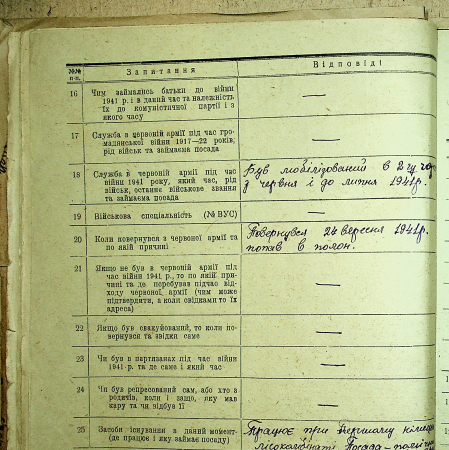 №№ п-п.
Запитання
Відповіді
16
Чим займались батьки до війни
1941 р. і в даний час та належність
їх до комуністичної партії і з
якого часу
—
17
Служба в червоній армії під час гро-
мадянської війни 1917—22 років,
рід військ та займаєма посада
—
18
Служба в червоній армії під час
війни 1941 року, який час, рід
військ, останнє військове звання
та займаєма посада
Був мобілізований в
з червня і до липня 1941р.
19
Військова спеціальність (№ ВУС)
—
20
Коли повернувся з червоної армії та
по якій причині
Повернувся 24 вересня 1941р.
попав в полон.
21
Якщо не був в червоній армії під
час війни 1941 р., то по якій при-
чині та де перебував підчас від-
ходу червоної армії (чим може
підтвердити, а коли свідками то їх
адреса)
—
22
Якщо був евакуйований, то коли по-
вернувся та звідки саме
—
23
Чи був в партизанах під час війни
1941 р. та де саме і який час
—
24
Чи був репресований сам, або хто з
родичів, коли і защо, яку мав
кару та чи відбув її
—
25
Засоби існування в даний момент
(де працює і яку займає посаду)
Працює при
Посада –